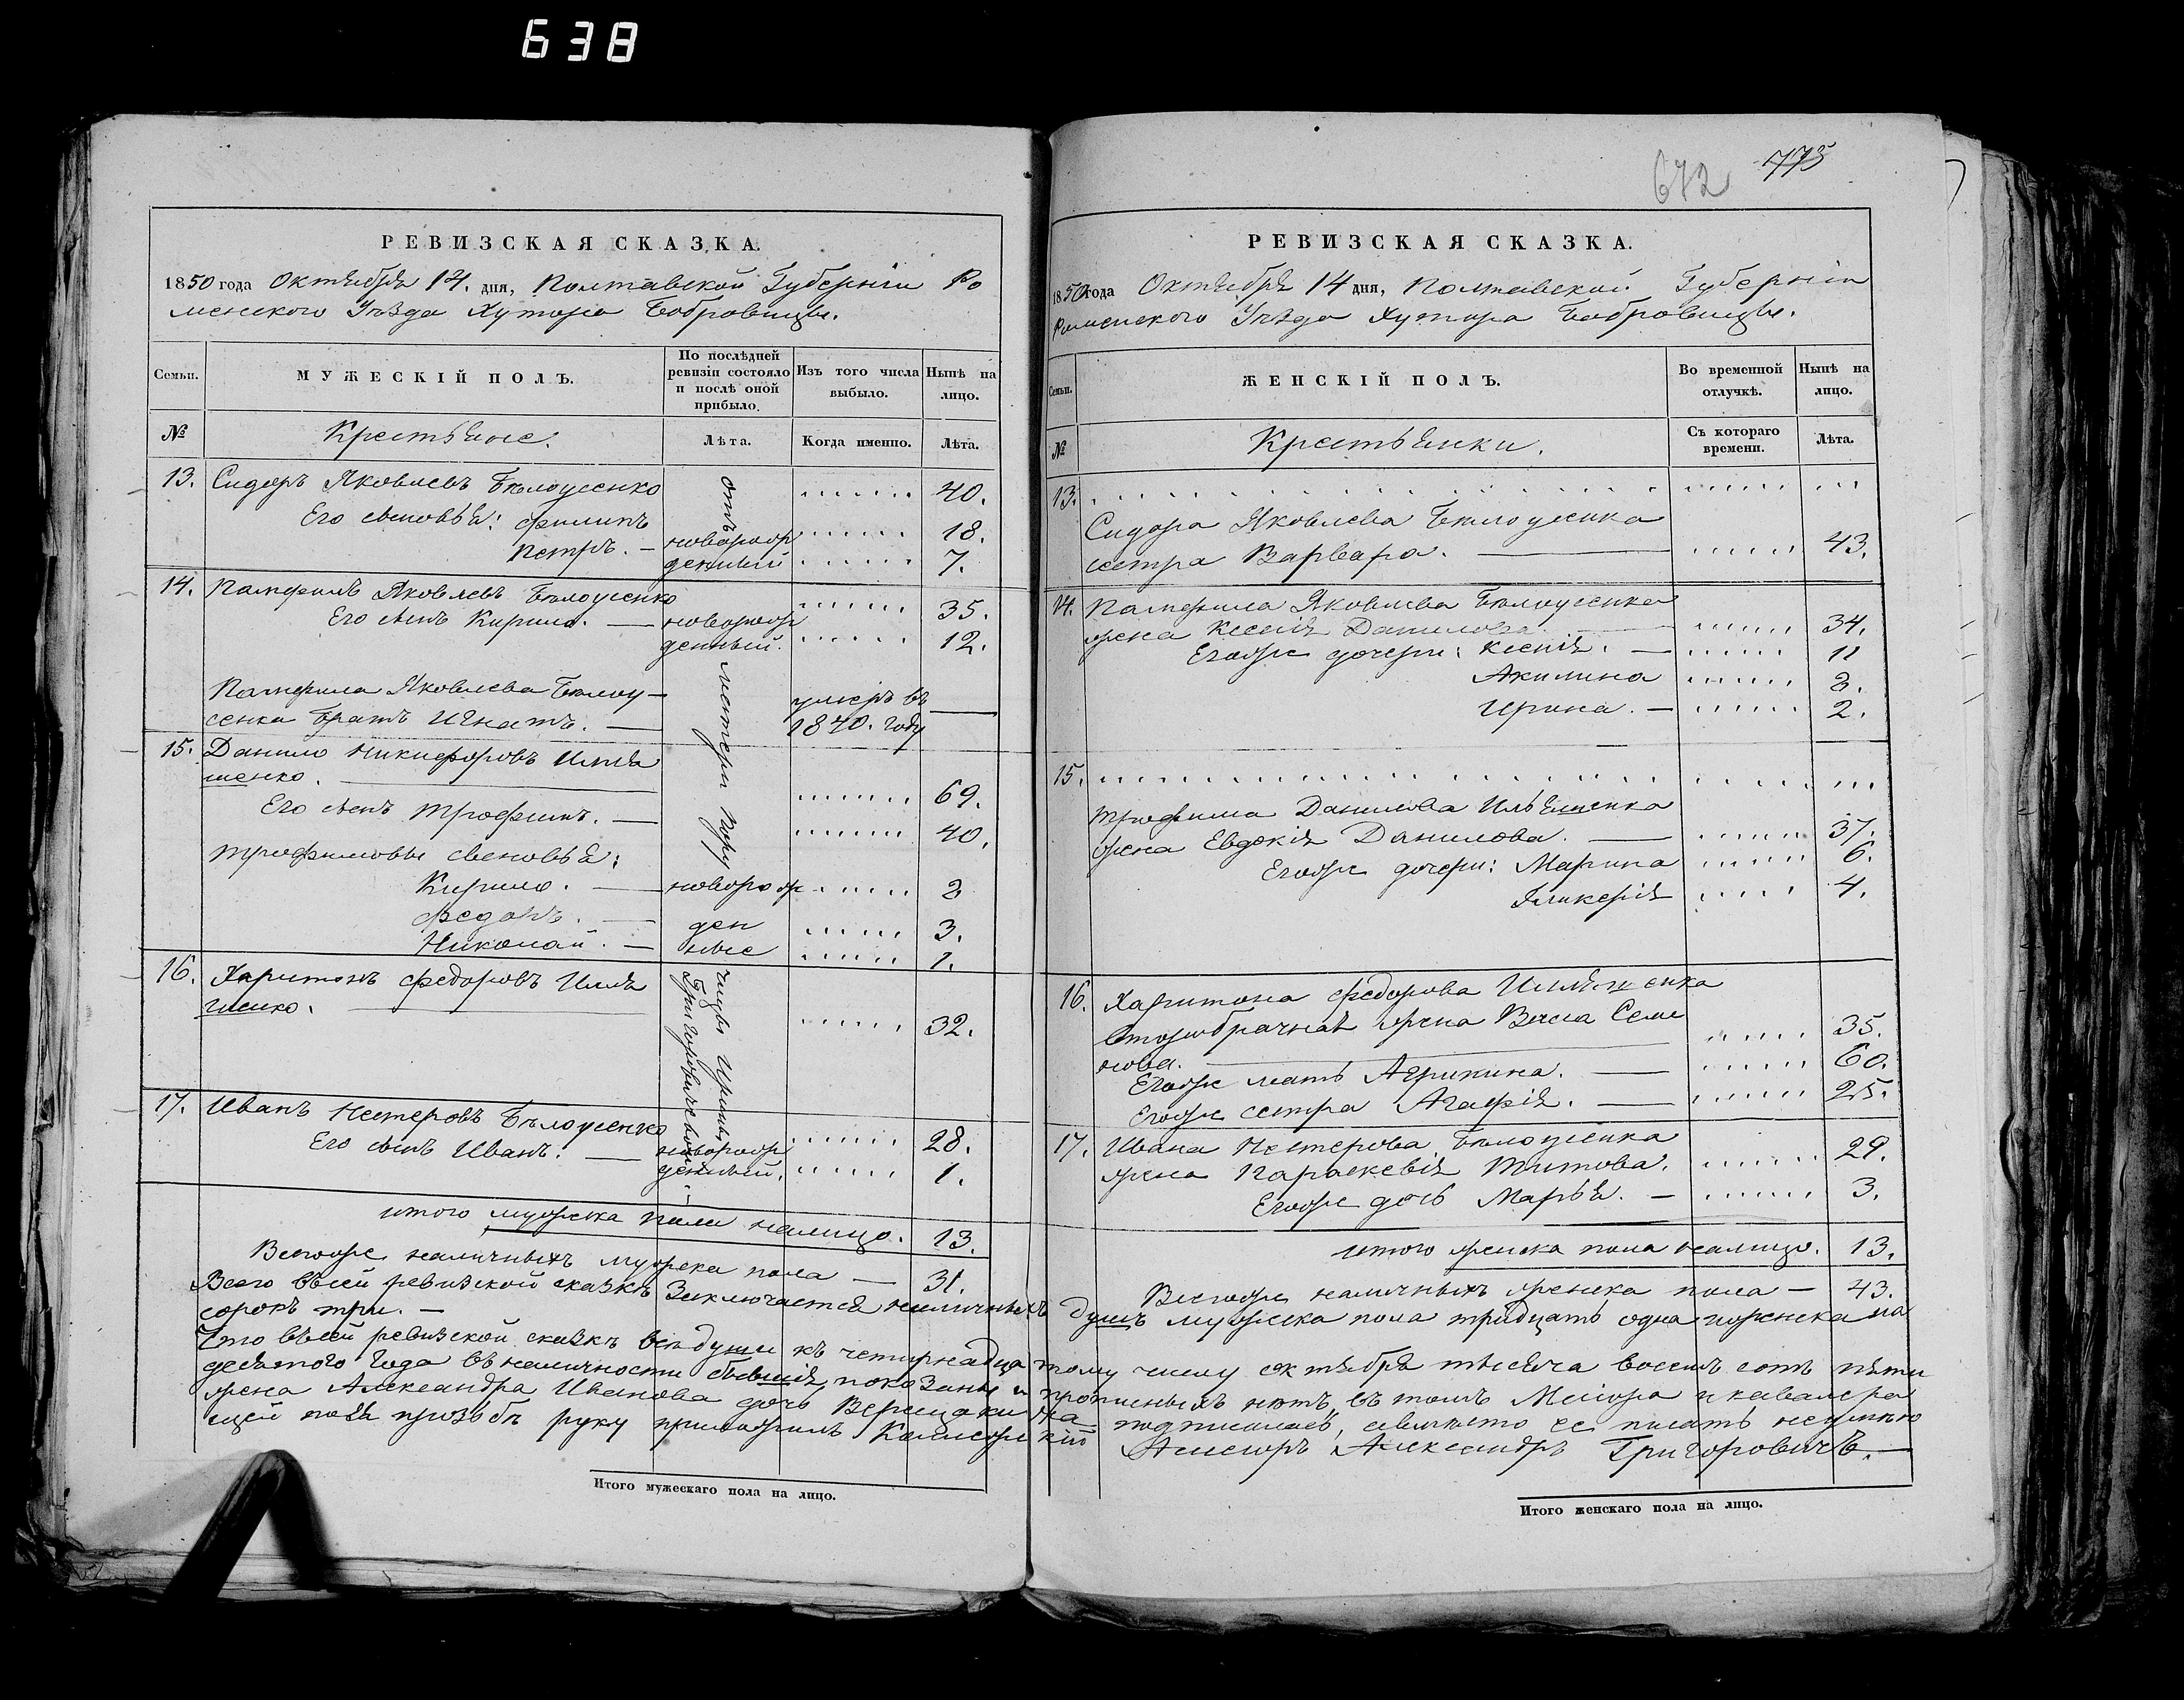 638
РЕВИЗСКАЯ СКАЗКА.
1850 года Октября 14. дня, Полтавской Губерніи Ро
менского Уѣзда Хутора Бобровицы.
Семьи.
МУЖЕСКІЙ ПОЛЪ.
По послѣдней
ревизіи состояло
и послѣ оной
прибыло.
Изъ того числа
выбыло.
Нынѣ на
лицо.
№
Крестьяне.
Лѣта.
Когда именно.
Лѣта.
13. Сидоръ Яковлевъ Бѣлоусенко 40.
Его сыновья: Филипъ 18.
Петръ. — новорож
денный 7.
14. Памфилъ Яковлевъ Бѣлоусенко 35.
Его сынъ Кирило. — новорож
денный. 12.
Памфила Яковлева Бѣлоу—
сенка братъ Игнатъ. — умеръ въ
1840. году —
15. Данило Никифоровъ Илля
шенко. 69.
Его сынъ Трофимъ. — 40.
Трофимовы сыновья:
Кирило. — новорож 2
Федотъ. — ден 3.
Николай. — ные 1.
16. Харитонъ Федоровъ Илля
шенко. 32.
17. Иванъ Нестеровъ Бѣлоусенко 28.
Его сынъ Иванъ. — новорож
денный. 1.
отъ
матери
Григоровичевой
итого мужеска пола налицо. 13.
Всегоже наличныхъ мужска пола — 31.
672 775
РЕВИЗСКАЯ СКАЗКА.
1850 года Октября 14 дня, Полтавской Губерніи
Роменского Уѣзда Хутора Бобровицы.
Семьи.
ЖЕНСКІЙ ПОЛЪ.
Во временной
отлучкѣ.
Нынѣ на
лицо.
№
Крестьянки.
Съ котораго
времени.
Лѣта.
13.
Сидора Яковлева Бѣлоусенка
сестра Варвара. — 43.
14. Памфила Яковлева Бѣлоусенка
жена Ксенія Данилова. 34.
Егоже дочери: Ксенія. — 11
Акилина
Ирина. — 2.
15.
Трофима Данилова Ильяшенка
жена Евдокія Данилова. — 37.
Егоже дочери: Марина 6.
Гликерія 4.
16. Харитона Федорова Илляшенка
второбрачная жена Васса Семе
нова. 35.
Егоже мать Агрипина. — 60.
Егоже сестра Агафія. — 25.
17. Ивана Нестерова Бѣлоусенка
жена Параскевія Титова. 29.
Егоже дочь Марья. — 3.
итого женска пола налицо. 13.
Всегоже наличныхъ женска пола — 43.
Всего въсей ревизской сказкѣ заключается наличныхъ душъ мужеска пола тридцать одна иженска па
сорокъ три. —
Что въсей ревизской сказкѣ всѣ души къ четырнадцатому числу октября тысяча восемь сотъ пяти
десятого года въналичности бывшія, показаны и прописныхъ нѣтъ, въ томъ Маіора и кавалера
жена Александра Иванова дочь подписалась, авмѣсто ее писать неумѣю
щей поея прозьбѣ руку приложилъ Александръ Григоровичъ. —
Итого мужескаго пола на лицо.
Итого женскаго пола на лицо.